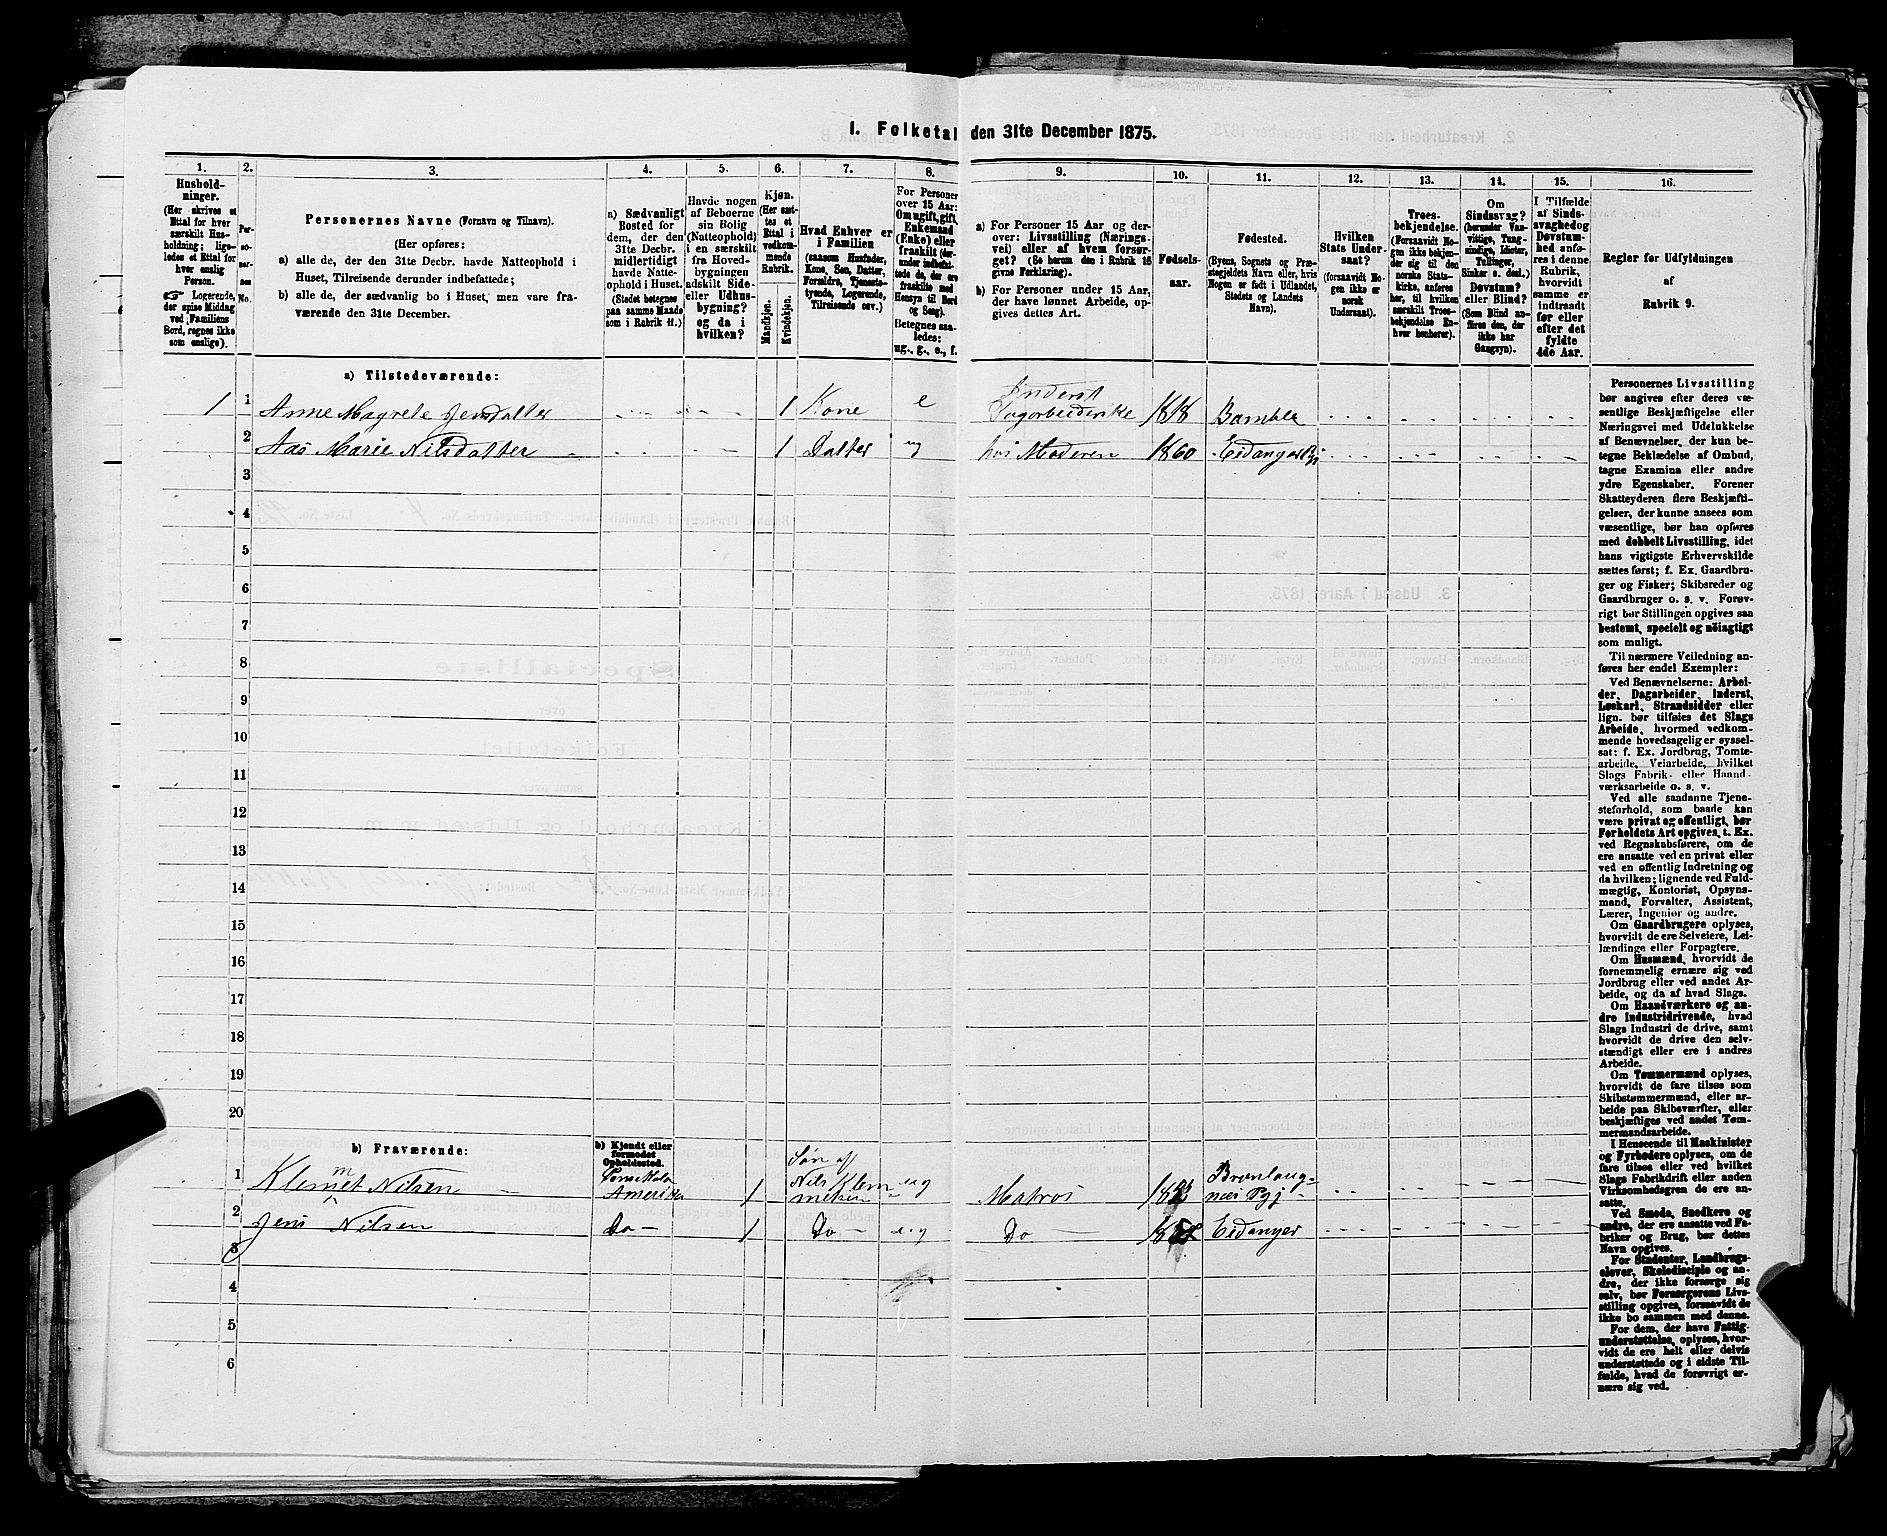 1. Folketal den 31te December 1875.
1. 2. 3. 4. 5. 6. 7. 8. 9. 10. 11. 12. 13. 14. 15. 16.
Hushold-
ninger.
(Her skrives et
Ettal for hver
særskilt Hus-
holdning; lige-
ledes et Ettal for
hver enslig
Person.
☞ Logerende,
der spise Middag
ved Familiens
Bord, regnes ikke
som enslige).
Per-
so-
ner-
nes
No.
Personernes Navne (Fornavn og Tilnavn).
(Her opføres:
a) alle de, der den 31te Decbr. havde Natteophold i
Huset, Tilreisende derunder indbefattede;
b) alle de, der sædvanlig bo i Huset, men vare fra-
værende den 31te December.
a) Sædvanligt
Bosted for
dem, der den
31te Decbr.
midlertidigt
havde Natte-
ophold i Huset.
(Stedet betegnes
paa samme Maade
som i Rubrik 11.)
Havde nogen
af Beboerne
sin Bolig
(Natteophold)
i en særskilt
fra Hoved-
bygningen
adskilt Side-
eller Udhus-
bygning?
og da i
hvilken?
Kjøn.
(Her sæt-
tes et
Ettal i
vedkom-
mende
Rubrik.
Mandkjøn.
Kvindekjøn.
Hvad Enhver er
i Familien
(saasom Husfader,
Kone, Søn, Datter,
Forældre, Tjeneste-
tyende, Logerende,
Tilreisende osv.)
For Personer
over 15 Aar:
Om ugift, gift,
Enkemand
(Enke) eller
fraskilt (der-
under indbefat-
tede de, der ere
fraskilte med
Hensyn til Bord
og Seng).
Betegnes saa-
ledes:
ug., g., e., f.
a) For Personer 15 Aar og der-
over: Livsstilling (Nærings-
vei) eller af hvem forsør-
get? (Se herom den i Rubrik 16
givne Forklaring).
b) For Personer under 15 Aar,
der have lønnet Arbeide, op-
gives dettes Art.
Fødsels-
aar.
Fødested.
(Byens, Sognets og Præ-
stegjeldets Navn eller, hvis
Nogen er født i Udlandet,
Stedets og Landets
Navn).
Hvilken
Stats Under-
saat?
(forsaavidt No-
gen ikke er
norsk
Undersaat).
Troes-
bekjendelse.
(Forsaavidt No-
gen ikke bekjen-
der sig til den
norske Stats-
kirke, anføres
her, til hvilken
særskilt Troes-
bekjendelse En-
hver henhører).
Om
Sindssvag?
(herunder Van-
vittige, Tung-
sindige, Idioter,
Tullinger,
Sinker o. desl.)
Døvstum?
eller Blind?
(Som Blind an-
føres den, der
ikke har
Gangsyn).
I Tilfælde
af Sinds-
svaghed og
Døvstum-
hed anfø-
res i denne
Rubrik,
hvorvidt
samme er
indtraadt
før eller
efter det
fyldte
4de Aar.
Regler for Udfyldningen
af
Rubrik 9.
a) Tilstedeværende:
1 1 Anne Magrete Jensdatter 1 Kone e Inderst
Dagarbeiderske 1818 Bamble
2 Aas Marie Nilsdatter 1 Datter ug hos Moderen 1860 Eidanger Pgj
3
4
5
6
7
8
9
10
11
12
13
14
15
16
17
18
19
20
b) Fraværende:
b) Kjendt eller
formodet
Opholdssted.
1 Klemmet Nilsen Amerika 1 Søn af
Nils Klem-
metsen ug Matros Brunlaug-
næs Pgj
2 Jens Nilsen Do 1 Do ug Do Eidanger
3
4
5
6
Personernes Livsstilling
bør angives efter deres væ-
sentlige Beskjæftigelse eller
Næringsvei med Udelukkelse
af Benævnelser, der kun be-
tegne Beklædelse af Ombud,
tagne Examina eller andre
ydre Egenskaber. Forener
Skatteyderen flere Beskjæfti-
gelser, der kunne ansees som
væsentlige, bør han opføres
med dobbelt Livsstilling, idet
hans vigtigste Erhvervskilde
sættes først; f. Ex. Gaardbru-
ger og Fisker; Skibsreder og
Gaardbruger o. s. v. Forøv-
rigt bør Stillingen opgives saa
bestemt, specielt og nøiagtigt
som muligt.
Til nærmere Veiledning an-
føres her endel Exempler:
Ved Benævnelserne: Arbei-
der, Dagarbeider, Inderst,
Løskarl, Strandsidder eller
lign. bør tilføies det Slags
Arbeide, hvormed vedkom-
mende hovedsagelig er syssel-
sat: f. Ex. Jordbrug, Tomte-
arbeide, Veiarbeide, hvilket
Slags Fabrik- eller Haand-
værksarbeide o. s. v.
Ved alle saadanne Tjene-
steforhold, som baade kan
være privat og offentligt, bør
Forholdets Art opgives, t. Ex.
ved Regnskabsførere, om de
ere ansatte ved en privat eller
ved en offentlig Indretning og
da hvilken; lignende ved Fuld-
mægtig, Kontorist, Opsyns-
mand, Forvalter, Assistent,
Lærer, Ingeniør og andre.
Om Gaardbrugere oplyses,
hvorvidt de ere Selveiere, Lei-
lændinge eller Forpagtere.
Om Husmænd, hvorvidt de
fornemmelig ernære sig ved
Jordbrug eller ved andet Ar-
beide, og da af hvad Slags.
Om Haandværkere og an-
dre Industridrivende, hvad
Slags Industri de drive, samt
hvorvidt de drive den selv-
stændigt eller ere i andres
Arbeide.
Om Tømmermænd oplyses,
hvorvidt de fare tilsøs som
Skibstømmermænd, eller ar-
beide paa Skibsværfter, eller
beskjæftiges ved andet Tøm-
mermandsarbeide.
I Henseende til Maskinister
og Fyrbødere oplyses, om de
fare tilsøs eller ved hvilket
Slags Fabrikdrift eller anden
Virksomhedsgren de ere an-
satte.
Ved Smede, Snedkere og
andre, der ere ansatte ved Fa-
briker og Brug, bør dettes
Navn opgives.
For Studenter, Landbrugs-
elever, Skoledisciple og an-
dre, der ikke forsørge sig
selv, bør Forsørgerens Livs-
stilling opgives, forsaavidt de
ikke bo sammen med denne.
For dem, der have Fattig-
understøttelse, oplyses, hvor-
vidt de ere helt eller delvis
understøttede og i sidste Til-
fælde, hvad de forøvrigt er-
nære sig ved.